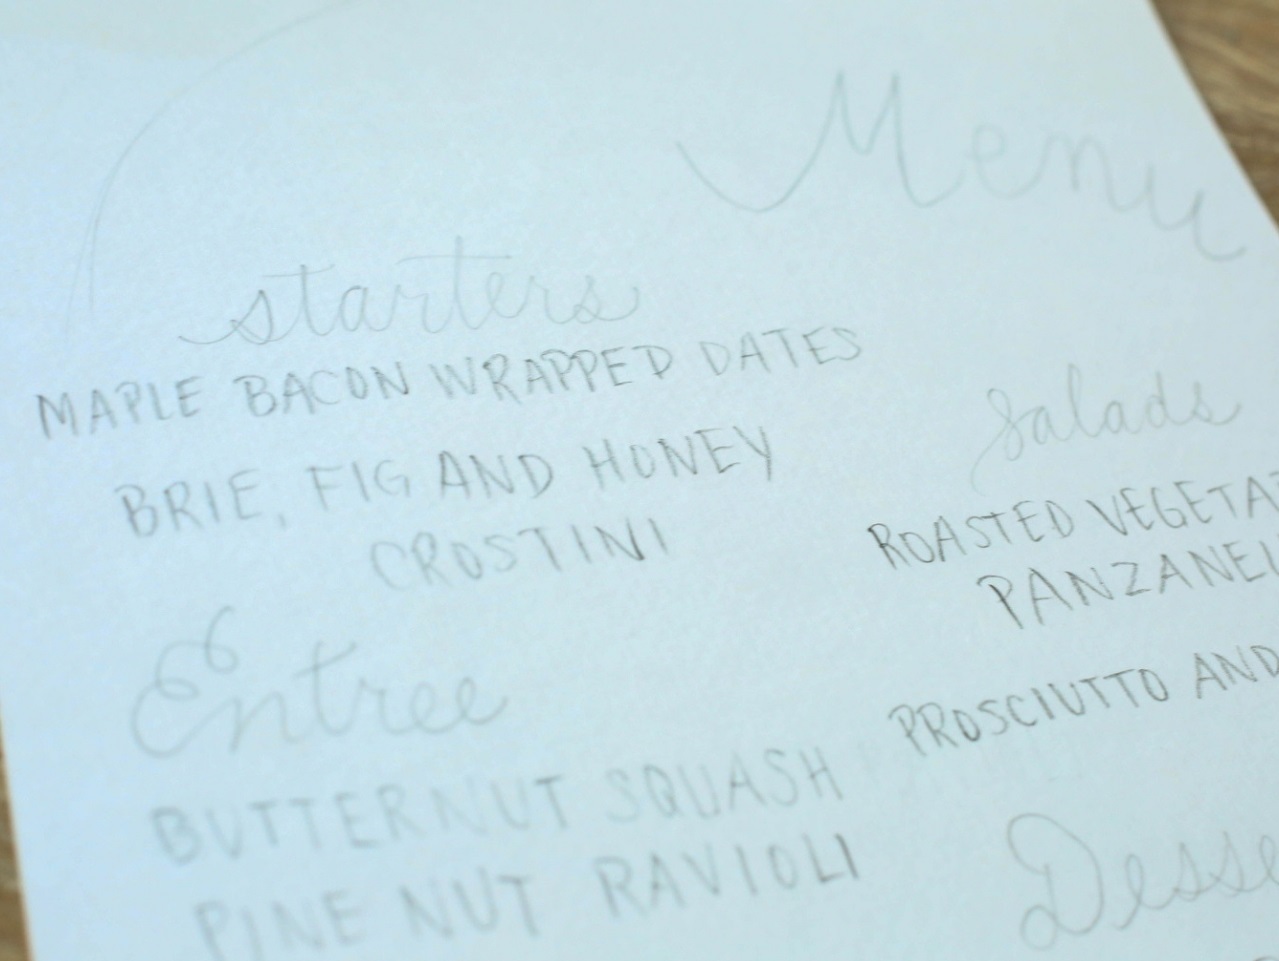 Menu
starters
MAPLE BACON WRAPPED DATES
BRIE, FIG AND HONEY
CROSTINI
Entree
BUTTERNUT SQUASH
PINE NUT RAVIOLI
Salads
ROASTED VEGETA
PANZANEL
PROSCIUTTO AND
Desse